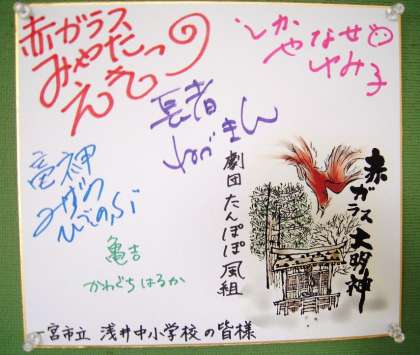 赤ガラス
みやた
えきっの
しか
やなせ
ゆみ子
長者
竜神
みずの
ひでのぶ
亀吉
かわぐちはるか
劇団たんぽぽ風組
赤ガラス大明神
一宮市立 浅井中小学校の皆様